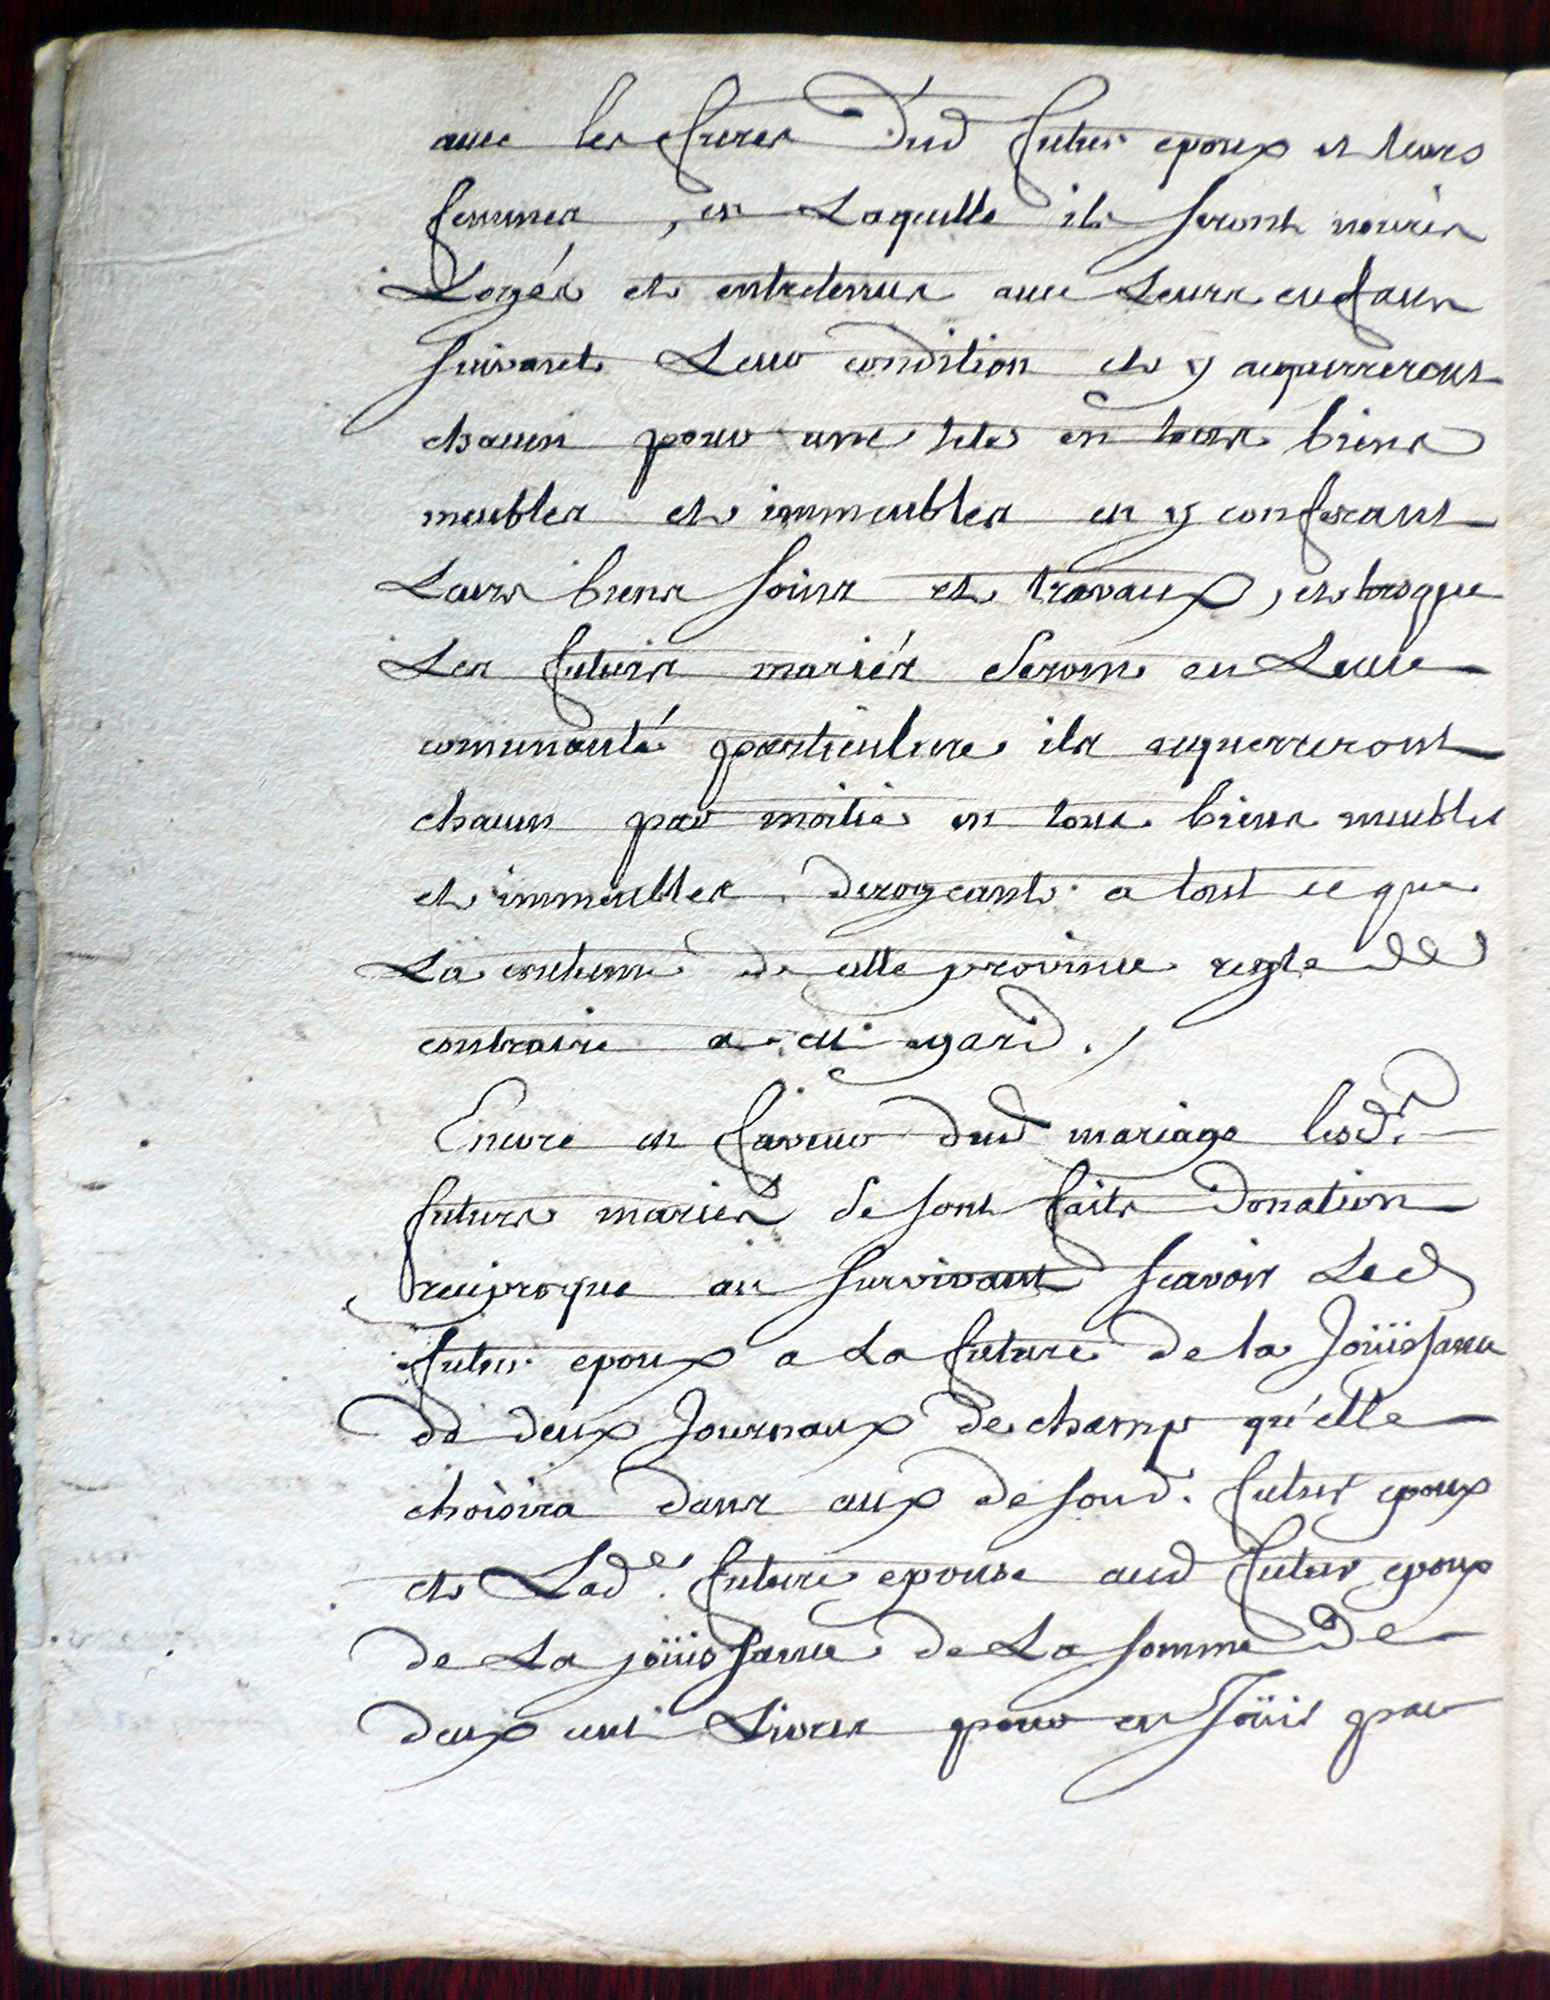 avec les freres dud futur epoux et leurs
femmes, en Laquelle ils seront nouris
Logés et entretenus avec Leurs enfans
suivant Leur condition et y acquerreront
chacun pour une tete en tous biens
meubles et immeubles en y conferant
Leurs biens soins et travaux, et lorsque
Les futurs mariés seront en Leur
comunauté particuliere ils acquerreront
chacun par moitié en tous biens meubles
et immeubles, derogeant a tout ce que
La coutume de cette province regle de
contraire a cet egard. /
Encore en faveur dud mariage lesd.s
futurs mariés se sont faits donation
reciproque au survivant scavoir Led
futur epoux a La future de la Joüissance
de deux Journaux de champ qu'elle
choisira dans ceux de soud. futur epoux
et Lad.e future epouse aud futur epoux
de La joüissance de La somme de
deux cent Livres pour en Joüir par